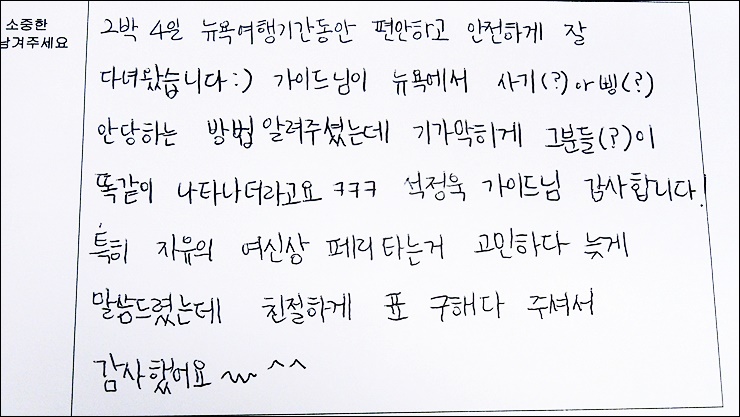 소중한
남겨주세요
2박 4일 뉴욕여행기간동안 편안하고 안전하게 잘
다녀왔습니다:) 가이드님이 뉴욕에서 사기(?)아삥(?)
안당하는 방법 알려주셨는데 기가막히게 그분들(?)이
똑같이 나타나더라고요 ㅋㅋㅋ 석정욱 가이드님 감사합니다!
특히 자유의 여신상 페리타는거 고민하다 늦게
말씀드렸는데 친절하게 표 구해다 주셔서
감사했어요~ ^^